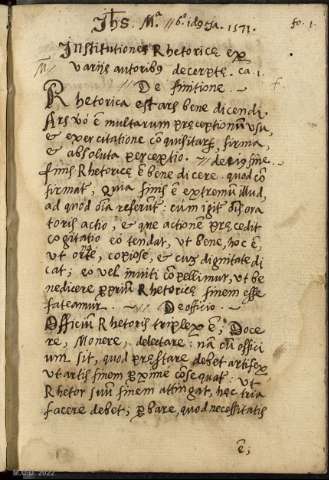 Jhs. Mª 1571. fo. 1.
Institutiones Rhetorice ex
varijs autoribus decerpte. ca. 1.
De finitione
Rhetorica est ars bene dicendi.
Ars vō ē multarum preceptionum usu,
& exercitatione cōquisitarū, firma,
& absoluta perceptio. de fine.
finis Rhetorice ē bene dicere. quod cō
firmat, Quia finis ē extremum illud,
ad quod referunt: cum
toris actio, & que actionē precedit
cogitatio cō tendat, ut bene, hoc ē,
ut copiose, & cum dignitate di
cat; eo vel inviti cōpellimur, ut be
ne dicere Rhetorice finem esse
fateamur. De officio.
Officiū Rhetoris triplex ē, Doce
re, Monere, delectare: nā cū offici
um sit, quod prestare debet artifex
ut artis finem ut
Rhetor suū finem attingat, hec tria
facere debet; pbare, quod necessitatis
ē;